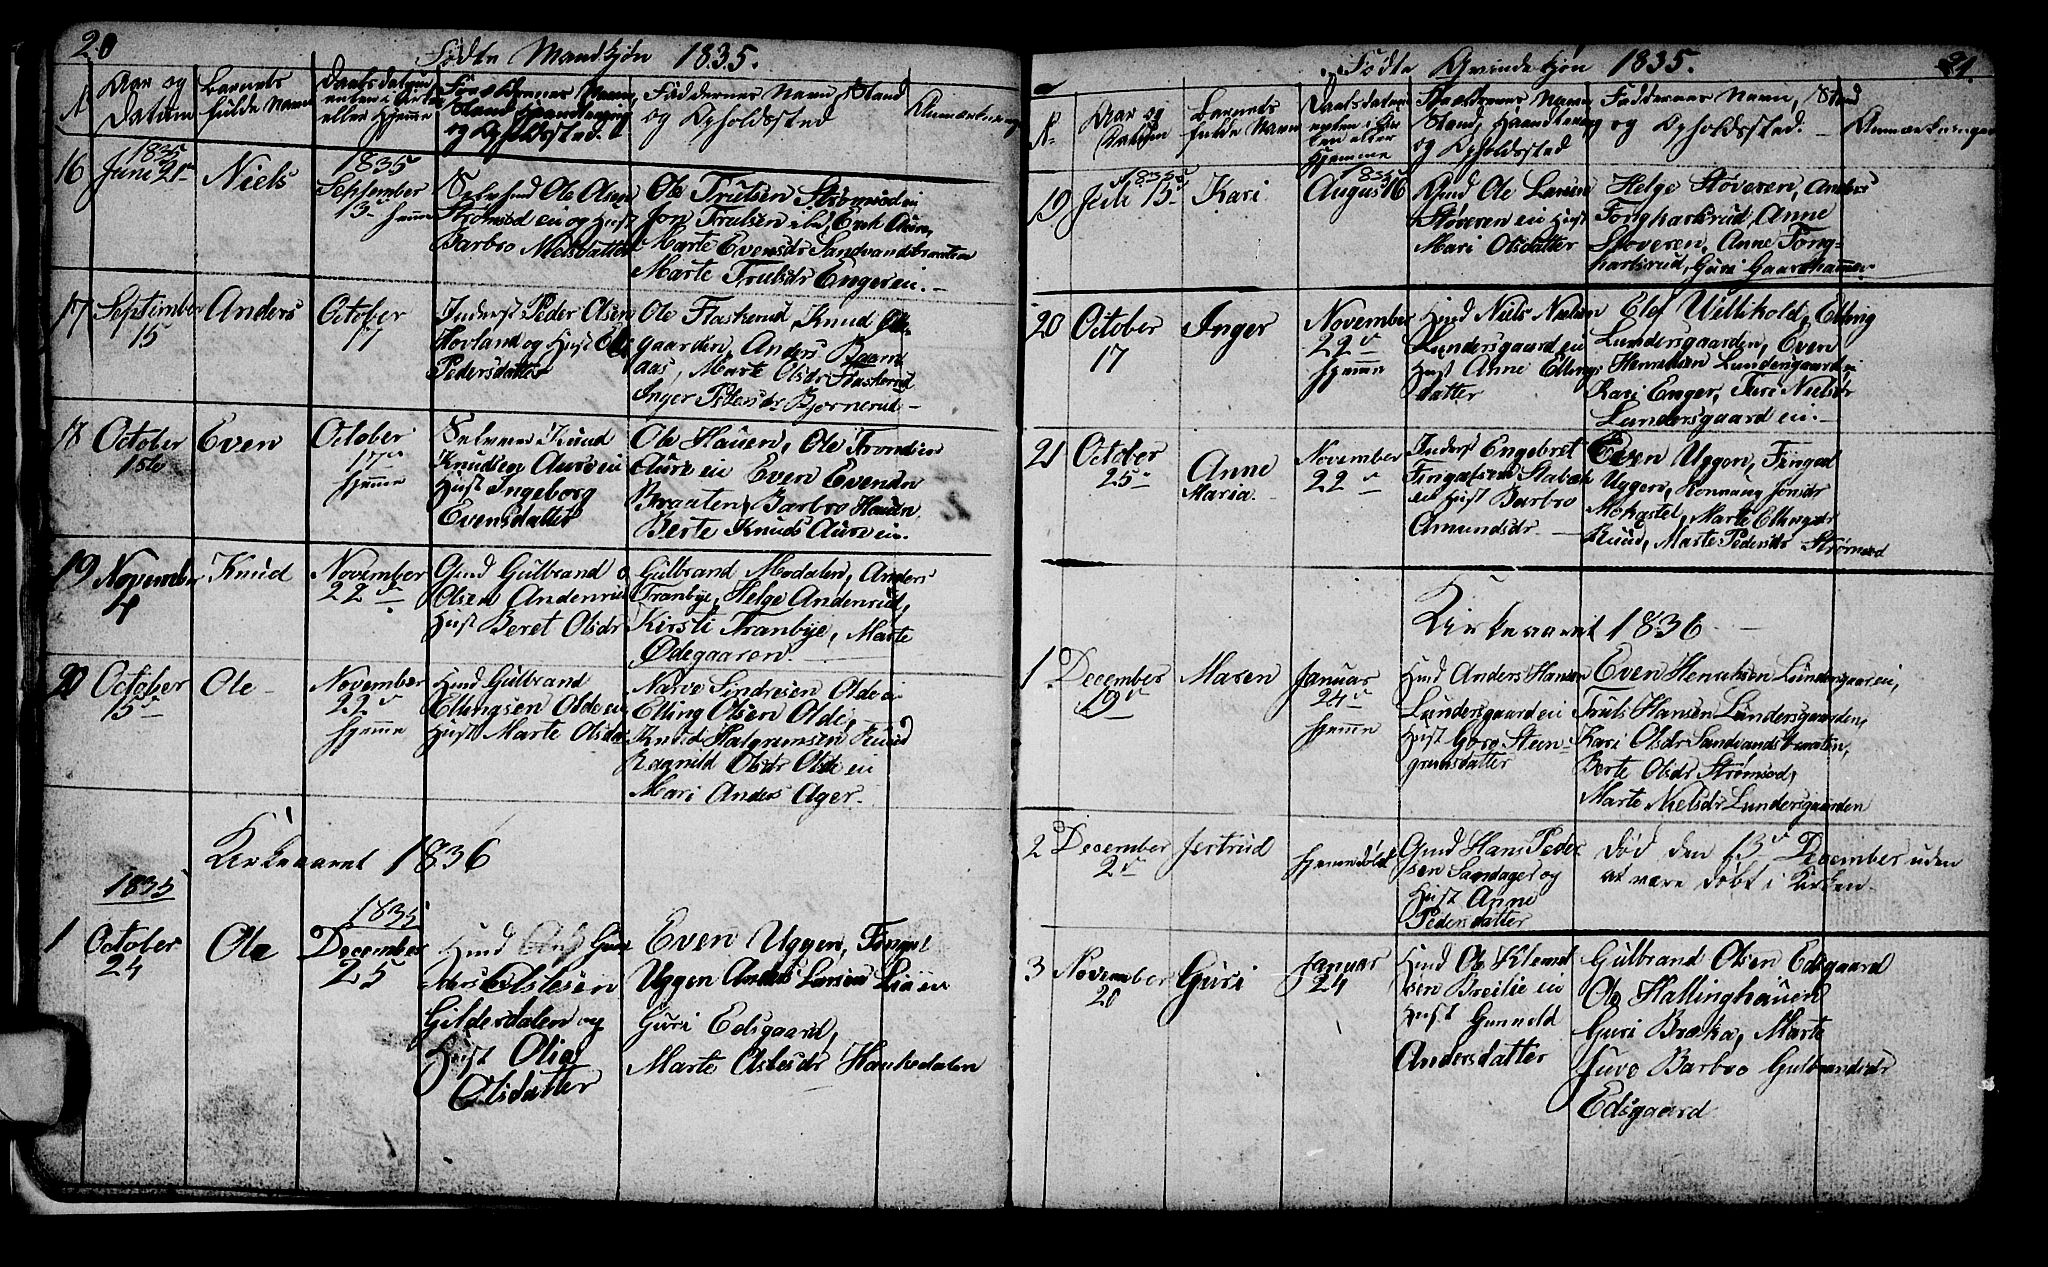 20
Födte Mandkjøn 1835.
N
Aar og
Datum
Barnets
fulde Navn
Daabsdatum
enten i Kirken
eller hjemme
Forældrenes Navn,
Stand Haandtering
og Opholdssted.
Faddernes Navn, Stand
og Opholdssted
Anmærkninger
16
1835
Juni 21
Niels
1835
September
13
hjemme
Selveiend Ole Olsen
Strømsod ei og Hust
Barbro Nielsdatter
Ole Trulsen Strømsod ei
Jon Trulsen ibd Erik Aure,
Marte Evensdr Sandvandsbraaten
Marte Trulsdr Enger ei.
17
September
15
Anders
October
17
Inderst Peder Olsen
Hovland og Hust
Pedersdatter
Ole Flaskerud, Knud
gaarden, Anders
aas, Marte Olsdr Flaskerud
Inger Pedersdr Bjørnerud
18
October
1ste
Even
October
17
hjemme
Selveier Knud
Knudsen Aure ei
Hust Ingeborg
Evensdatter
Ole Hauen, Ole Trondsen
Aure ei Even Evendn
Braaten, Barbro Hauen
Berte Knuds Aure ei.
19
November
4
Knud
November
22
Gmd Gulbrand
Olsen Andenrud
Hust Beret Olsdr
Gulbrand Modalen, Anders
Tranbye, Helge Andenrud,
Kirsti Tranbye, Marte
Ødegaaren.
20
October
15
Ole
November
22
hjemme
Hmd Gulbrand
Ellingsen Olde ei
Hust Marte Olsdr
Narve Sindresen Olde ei
Elling Olsen Olde,
Knud Halgrimsen Ruud
Ragneld Olsdr Olde ei
Mari Anders Ager.
Kirkeaaret 1836
1
1835
October
24
Ole
1835
December
25
Hmd
Aslesen
Gildersdalen og
Hust Olia
Olsdatter
Even Uggen, Fingal
Uggen Anders Larsen Lia ei
Guri Edsgaard,
Marte Aslesdr Haukedalen
21.
Födte Qvindekjøn 1835.
N.
Aar og
Datum
Barnets
fulde Navn
Daabsdatum
enten i Kir
ken eller
hjemme
Forældrenes Navn
Stand, Haandtering
og Opholdssted
Faddernes Navn, Stand
og Opholdssted.
Anmærkninger
19
1835
Juli 15
Kari
1835
August 16
Gmd Ole Larsen
Støveren ei Hust
Mari Olsdatter
Helge Støveren, Anders
Fongharksrud, Anne
Støveren, Anne Fong-
harksrud, Guri Gaarshammer
20
October
17
Inger
November
22
hjemme
Hmd Niels Nielsen
Lundersgaard ei
Hust Anne Ellings
datter
Elef Villikold, Elling
Lundersgaarden, Even
Henriksen Lundersgaarden
Kari Enger, Turi Nielsdr
Lundersgaard ei.
21
October
25
Anne
Maria
November
22
Inderst Engebret
Fingalsen Stabæk
ei Hust Barbro
Amundsdr
Even Uggen, Fingal
Uggen, Ronnaug Jonsdr
Mokastet, Marte Ellingsdr
Ruud, Marte Pedersdr Strømsod
Kirkeaaret 1836
1
December
19
Maren
Januar
24
hjemme
Hmd Anders Hansen
Lundersgaard ei
Hust Goro Steen-
grimsdatter
Even Henriksen Lundersgaard ei,
Truls Hansen Lundersgaarden,
Kari Olsdr Sandvandsbraaten,
Berte Olsdr Strømsod,
Marte Nielsdr Lundersgaarden
2
December
2
Jertrud
hjemmedøbt
Gmd Hans Peder
sen Sandager og
Hust Anne
Pedersdatter
Død den 13 December uden
at være døbt i Kirken
3
November
20
Guri
Januar
24
Hmd Ole Klemet
sen Breilie ei
Hust Gunneld
Andersdatter
Gulbrand Olsen Edsgaard
Ole Hallinghauen
Guri Braka, Marte
Juve Barbro Gulbrandsdr
Edsgaard